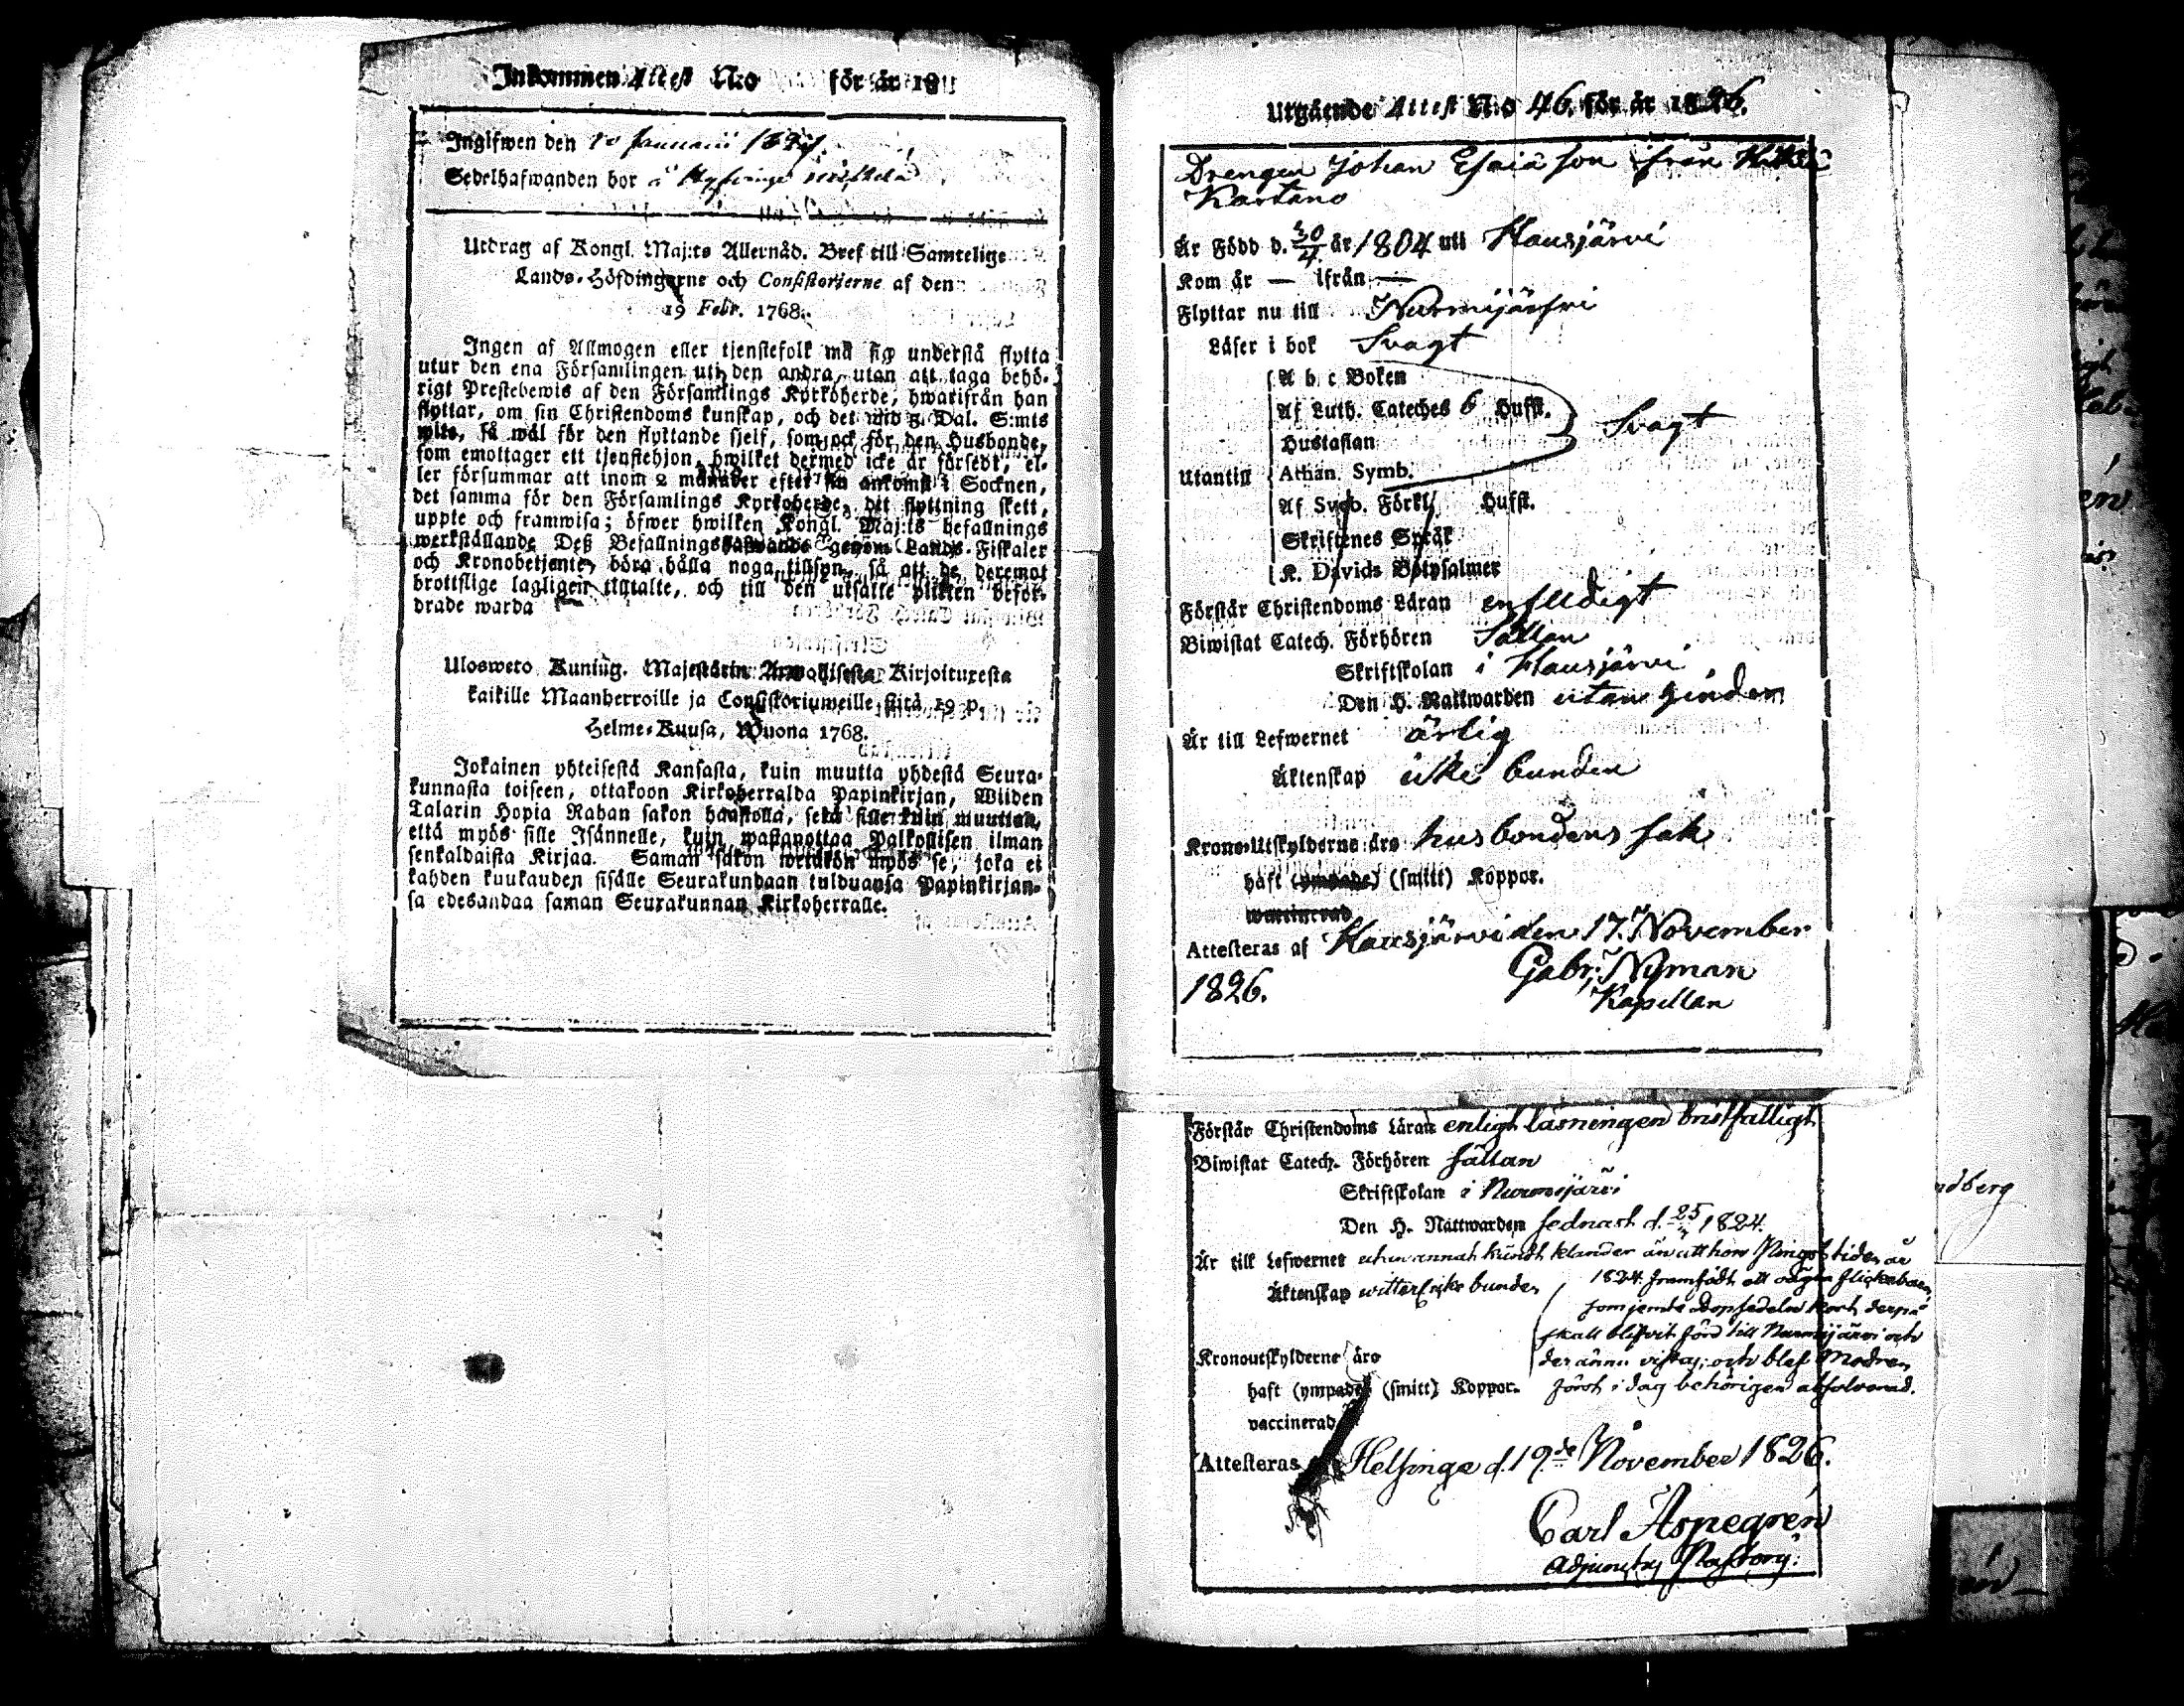 Inkommen Attest N:o för år 18
Ingifwen den 10 Januarii 1827.
Sedelhafwanden bor å Hyfvinge
Utdrag af Kongl. Maj:ts Allernåd. Bref till Samtelige
Lands-Höfdingarne och Consistorierne af den
19 Febr. 1768.
Ingen af Allmogen eller tjenstefolk må sig understå flytta
utur den ena Församlingen uti den andra, utan att taga behö-
rigt Prestebewis af den Församlings Kyrkoherde, hwarifrån han
flyttar, om sin Christendoms kunskap, och det wid 5 Dal. S:mts
wite, så wäl för den flyttande sjelf, som ock för den Husbonde,
som emottager ett tjenstehjon, hwilket dermed icke är försedt, el-
ler försummar att inom 2 månader efter sin ankomst i Socknen,
det samma för den Församlings Kyrkoherde, dit flyttning skett,
uppte och framwisa; öfwer hwilken Kongl. Maj:ts befallnings
werkställande Deß Befallningshafwande genom Lands-Fiskaler
och Kronobetjente, böra hålla noga tillsyn, så att de deremot
brottslige lagligen tilltalte, och till den utsatte plikten beför-
drade warda
Ulosweto Kuning. Majestetin Armollisesta Kirjoituxesta
kaikille Maanherroille ja Consistoriumeille siitä 19 p.
Helme-Kuusa, Wuona 1768.
Jokainen yhteisestä Kansasta, kuin muutta yhdestä Seura-
kunnasta toiseen, ottakoon Kirkoherralda Papinkirjan, Wiiden
Talarin Hopia Rahan sakon haastolla, sekä sille kuin muuttaa,
että myös sille Isännelle, kuin wastanottaa Palkollisen ilman
senkaldaista Kirjaa. Saman sakon wetäkön myös se, joka ei
kahden kuukauden sisälle Seurakundaan tulduansa Papinkirjan-
sa edesandaa saman Seurakunnan Kirkoherralle.
Utgående Attest N:o 46. för år 1826.
Drengen Johan Esaiasson ifrån
Kartano
Är Född d. 30/4 år 1804 uti Hausjärvi
Kom år — ifrån —
Flyttar nu till Nurmijärfvi
Läser i bok Svagt
A b c Boken
Af Luth. Cateches 6 Hufst.
Hustaflan Svagt
Utantill Athan. Symb.
Af Sveb. Förkl. Hufst.
Skriftenes Språk
K. Davids Botpsalmer
Förstår Christendoms Läran enfeldigt
Biwistat Catech. Förhören Sällan
Skriftskolan i Hausjärvi
Den H. Nattwarden utan hinder
Är till Lefwernet ärlig
Äktenskap icke bunden
Krono-Utskylderne äro husbondens sak
haft (ympade) (smitt) Koppor.
waccinerad
Attesteras af Hausjärvi den 17. November
1826. Gabr. Nyman
Kapellan
Förstår Christendoms Läran enligt läsningen bristfälligt
Biwistat Catech. Förhören sällan
Skriftskolan i Nurmijärvi
Den H. Nattwarden sednast d. 25/ 1824.
Är till Lefwernet utan annat kändt klander än att hon Pingst tiden år
Äktenskap witterl. icke bunden 1824 framfödt ett oägta flickebarn,
som jemte Dopsedeln kort derpå
skall blifvit förd till Nurmijärvi och
Kronoutskylderne äro der ännu vistas; och blef Modren
haft (ympade) (smitt) Koppor. först i dag behörigen absolverad.
vaccinerad
Attesteras Helsinge d. 19de November 1826.
Carl Aspegrén
Adjunctus Pastoris.
dberg